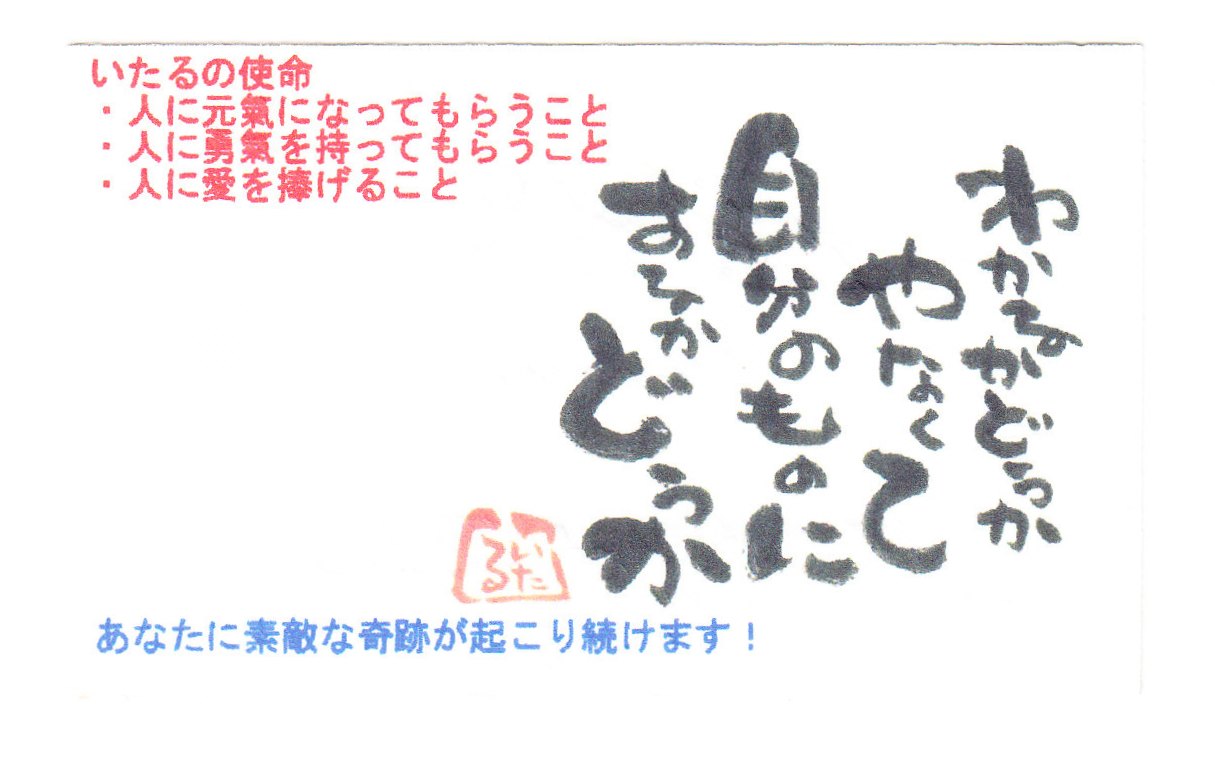 いたるの使命
・人に元氣になってもらうこと
・人に勇氣を持ってもらうこと
・人に愛を捧げること
わかるかどうか
やなくて
自分のものに
するか
どうか
いたる
あなたに素敵な奇跡が起こり続けます！